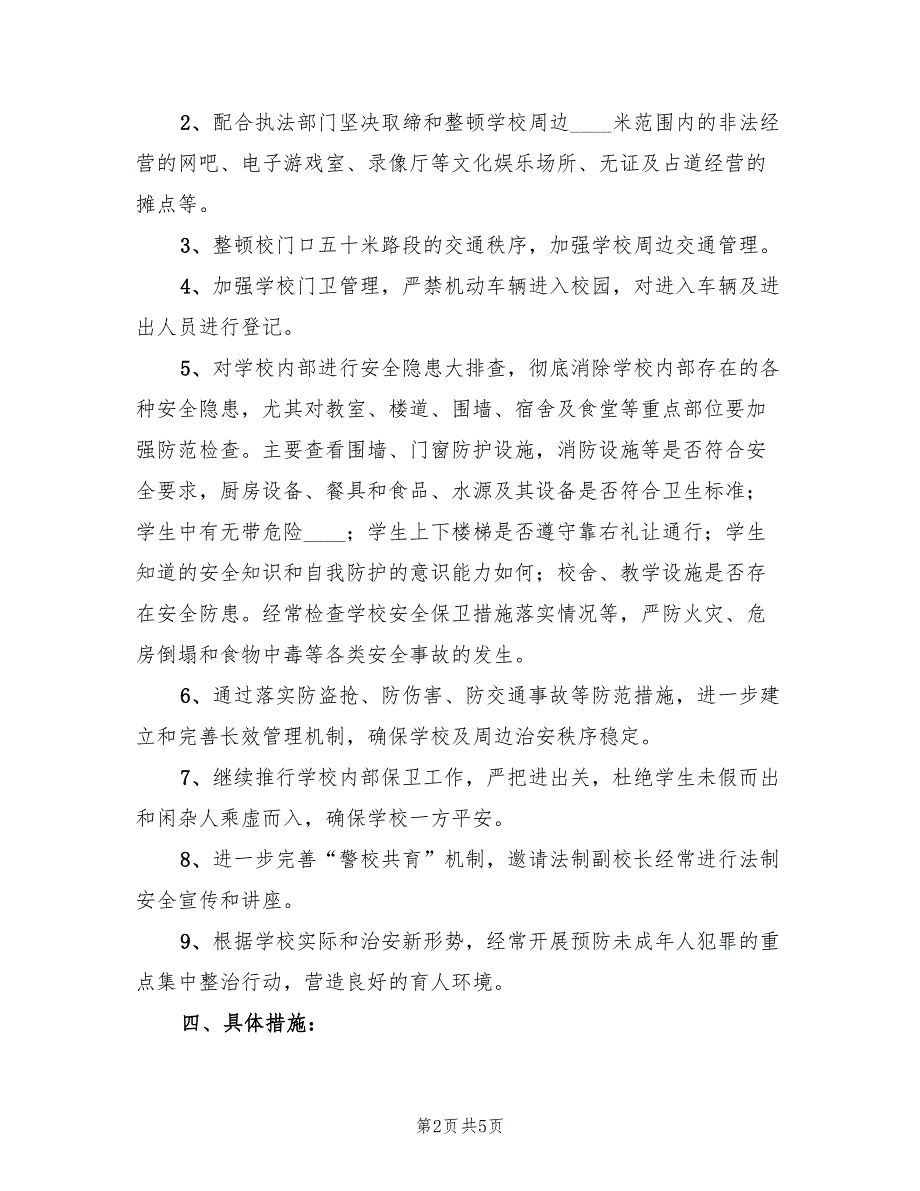 2、配合执法部门坚决取缔和整顿学校周边____米范围内的非法经
营的网吧、电子游戏室、录像厅等文化娱乐场所、无证及占道经营的
摊点等。
3、整顿校门口五十米路段的交通秩序，加强学校周边交通管理。
4、加强学校门卫管理，严禁机动车辆进入校园，对进入车辆及进
出人员进行登记。
5、对学校内部进行安全隐患大排查，彻底消除学校内部存在的各
种安全隐患，尤其对教室、楼道、围墙、宿舍及食堂等重点部位要加
强防范检查。主要查看围墙、门窗防护设施，消防设施等是否符合安
全要求，厨房设备、餐具和食品、水源及其设备是否符合卫生标准；
学生中有无带危险____；学生上下楼梯是否遵守靠右礼让通行；学生
知道的安全知识和自我防护的意识能力如何；校舍、教学设施是否存
在安全防患。经常检查学校安全保卫措施落实情况等，严防火灾、危
房倒塌和食物中毒等各类安全事故的发生。
6、通过落实防盗抢、防伤害、防交通事故等防范措施，进一步建
立和完善长效管理机制，确保学校及周边治安秩序稳定。
7、继续推行学校内部保卫工作，严把进出关，杜绝学生未假而出
和闲杂人乘虚而入，确保学校一方平安。
8、进一步完善“警校共育”机制，邀请法制副校长经常进行法制
安全宣传和讲座。
9、根据学校实际和治安新形势，经常开展预防未成年人犯罪的重
点集中整治行动，营造良好的育人环境。
四、具体措施：
第2页共5页